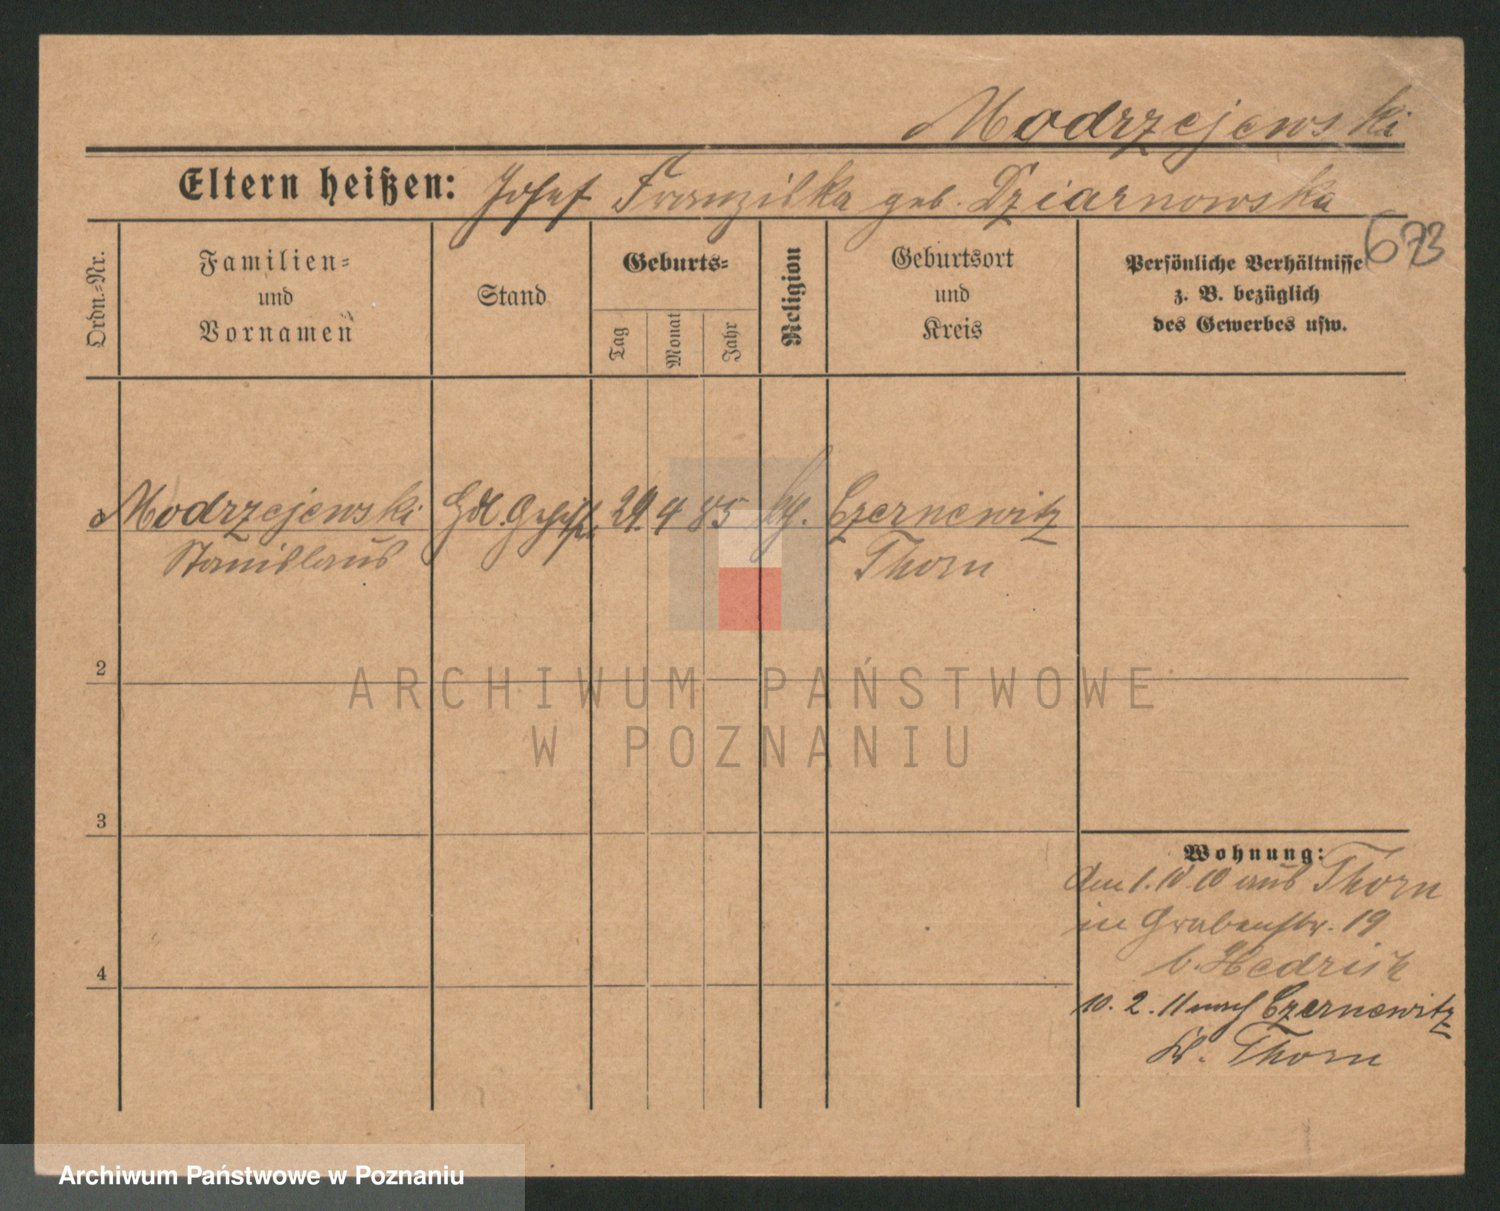 Modrzejewski
Eltern heißen: Josef Franziska geb. Dziarnowska
673
Ordn.=Nr.
Familien=
und
Vornamen
Stand
Geburts=
Tag
Monat
Jahr
Religion
Geburtsort
und
Kreis
Persönliche Verhältnisse
z. B. bezüglich
des Gewerbes usw.
Modrzejewski
Stanislaus
29. 4 85
Czernewitz
Thorn
2
3
4
ARCHIWUM PAŃSTWOWE
W POZNANIU
Wohnung:
Am 1. 10 10 aus Thorn
in Grabenstr. 19
b. Hedrich
10. 2. 11 nach Czernewitz
Kr. Thorn
Archiwum Państwowe w Poznaniu